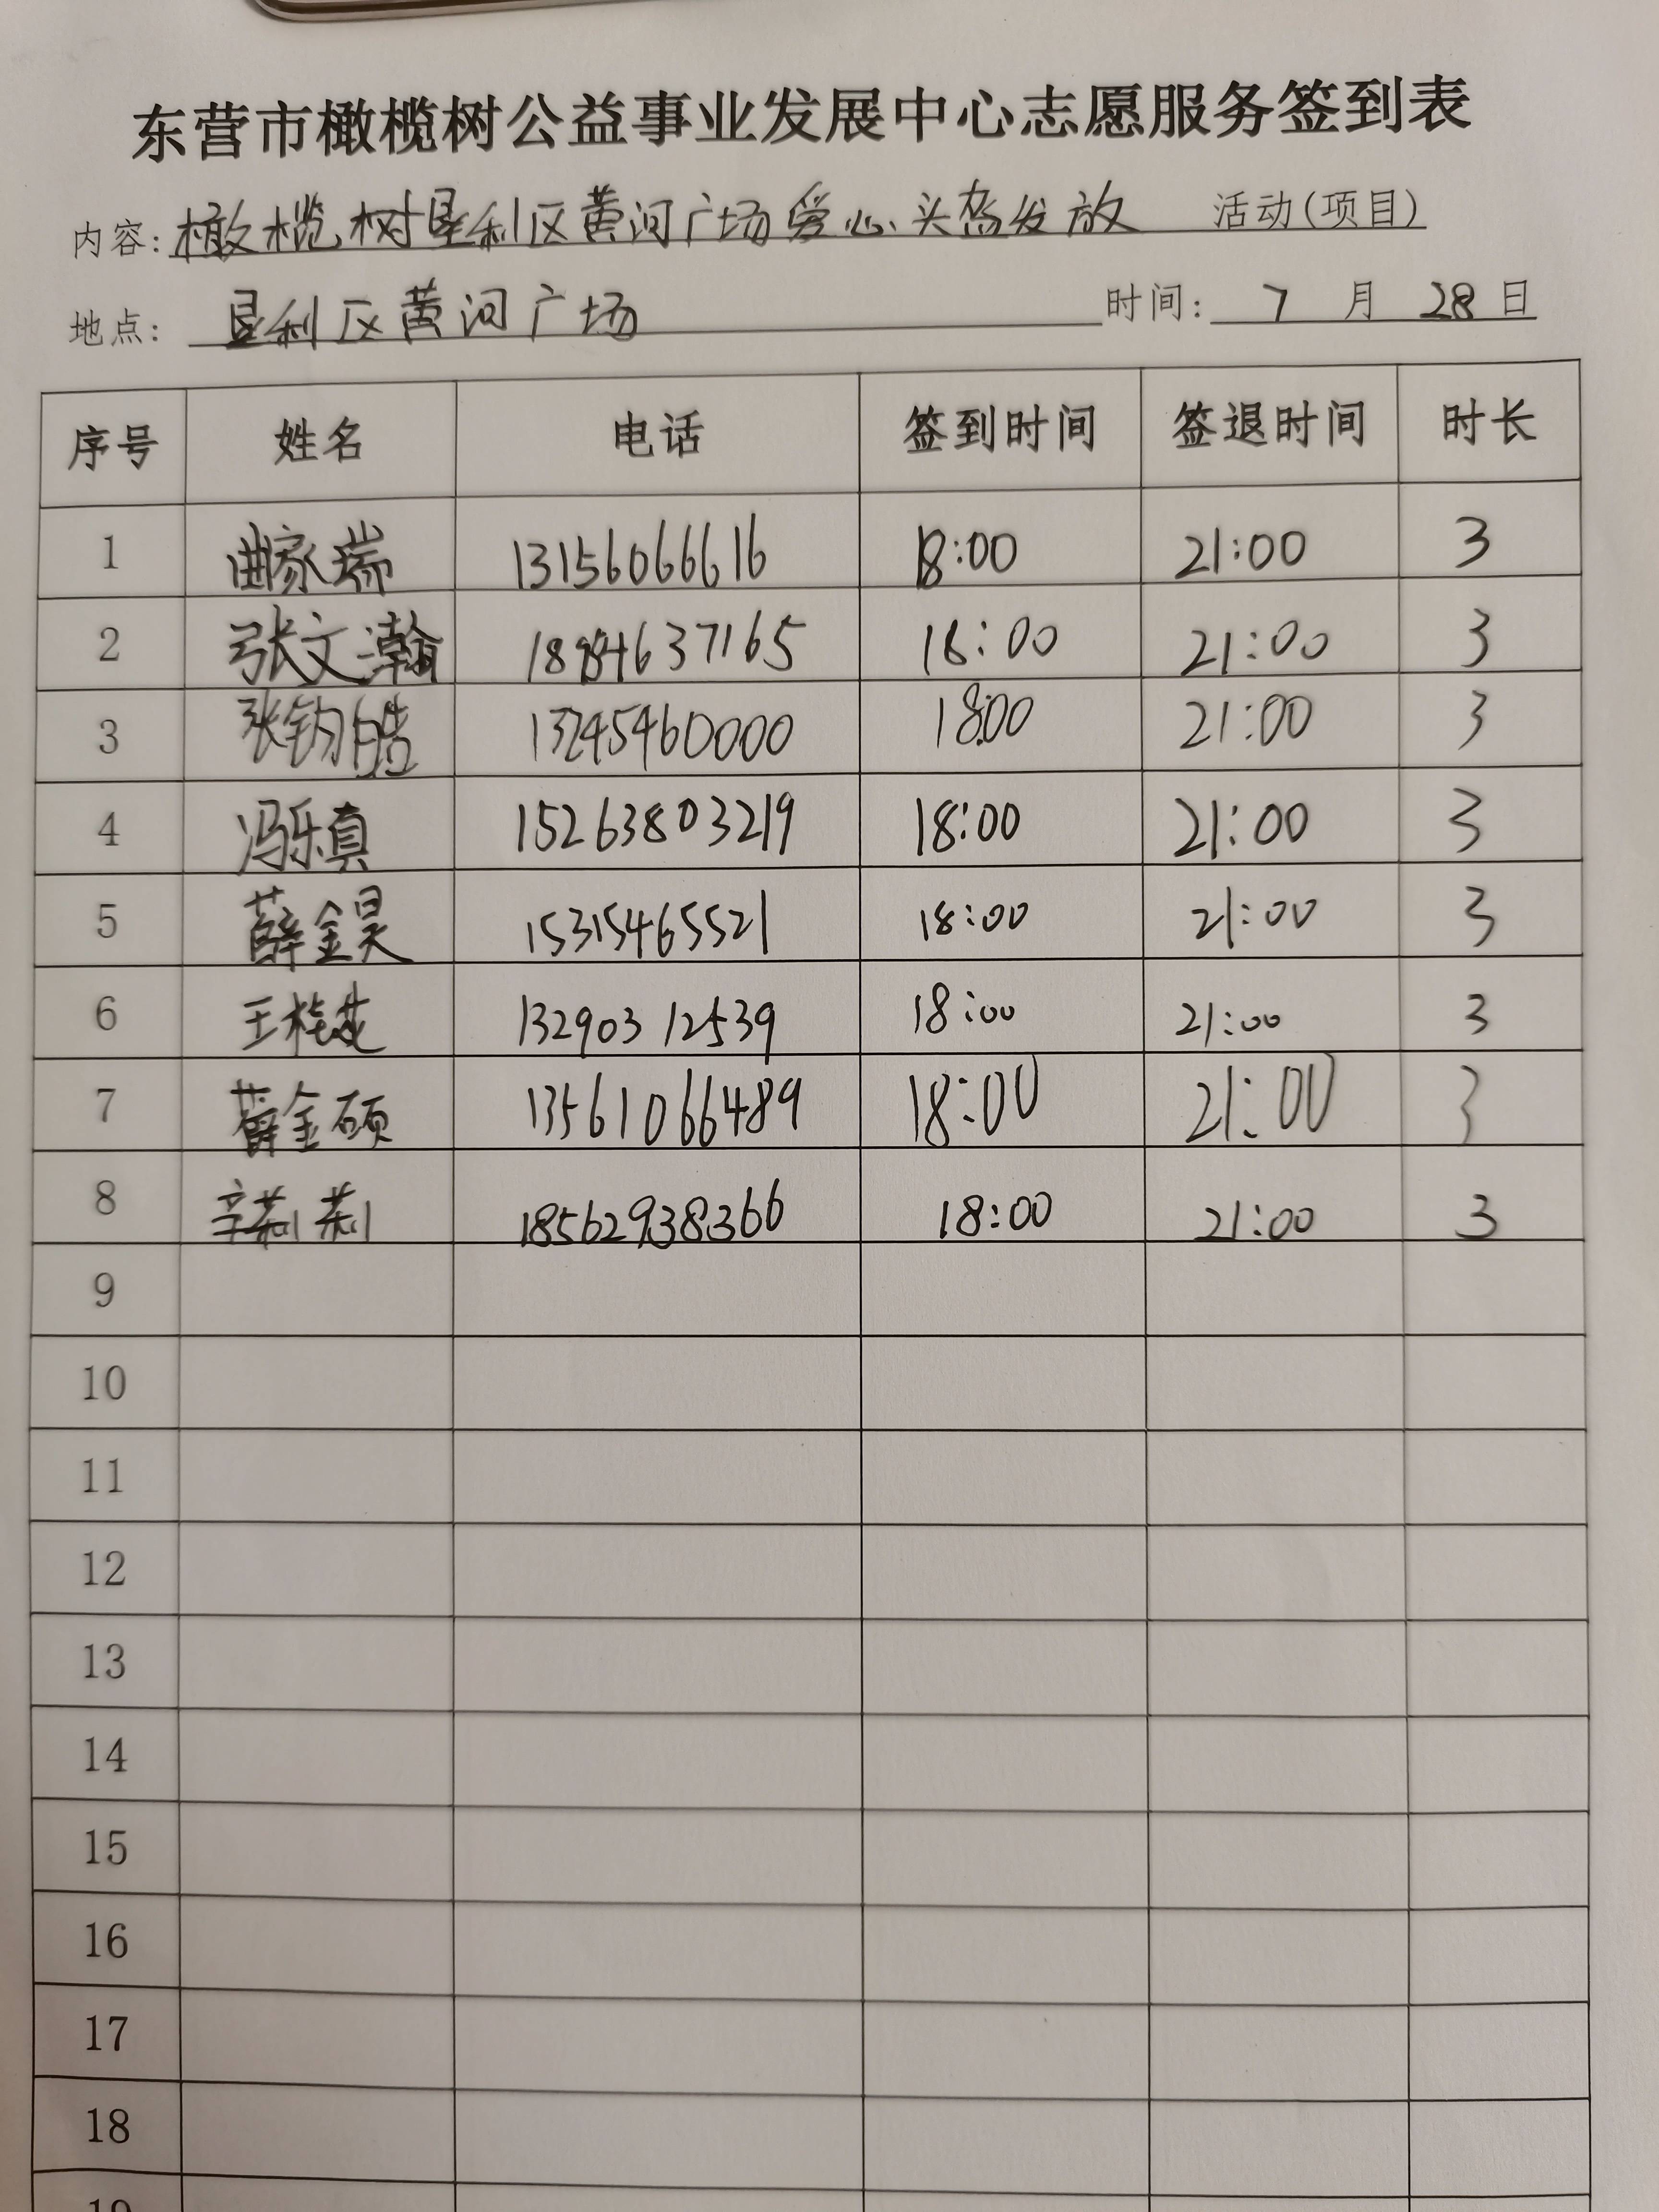 东营市橄榄树公益事业发展中心志愿服务签到表
内容：橄榄树垦利区黄河广场爱心头盔发放 活动(项目)
地点：垦利区黄河广场 时间：7月28日
序号 姓名 电话 签到时间 签退时间 时长
1 曲家瑞 13156066616 18:00 21:00 3
2 张文瀚 18:00 21:00 3
3 张钧皓 13245460000 18:00 21:00 3
4 冯乐真 15263803219 18:00 21:00 3
5 薛金昊 15315465521 18:00 21:00 3
6 王桂 13290312539 18:00 21:00 3
7 薛金硕 13561066489 18:00 21:00 3
8 辛莉莉 18562938366 18:00 21:00 3
9
10
11
12
13
14
15
16
17
18
19